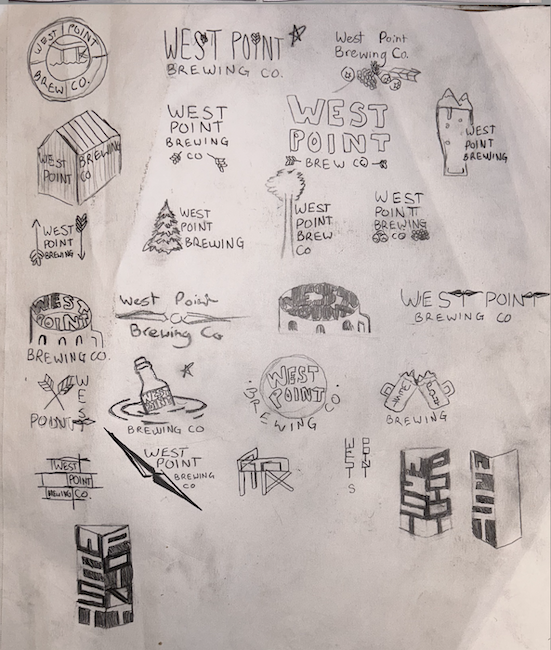 WEST POINT
BREW CO.
WEST POINT
BREWING CO.
West Point
Brewing Co.
WEST
POINT
BREWING
CO
WEST
POINT
BREWING
CO
WEST
POINT
BREW CO
WEST
POINT
BREWING
WEST
POINT
BREWING
WEST
POINT
BREWING
WEST
POINT
BREW
CO
WEST
POINT
BREWING
CO
WEST
POINT
BREWING CO.
West Point
Brewing Co
WEST
POINT
WEST POINT
BREWING CO
WEST
POINT
WEST
POINT
BREWING CO
WEST
POINT
BREWING CO.
BREWING
WEST
POINT
BREWING CO.
WEST
POINT
BREWING
CO